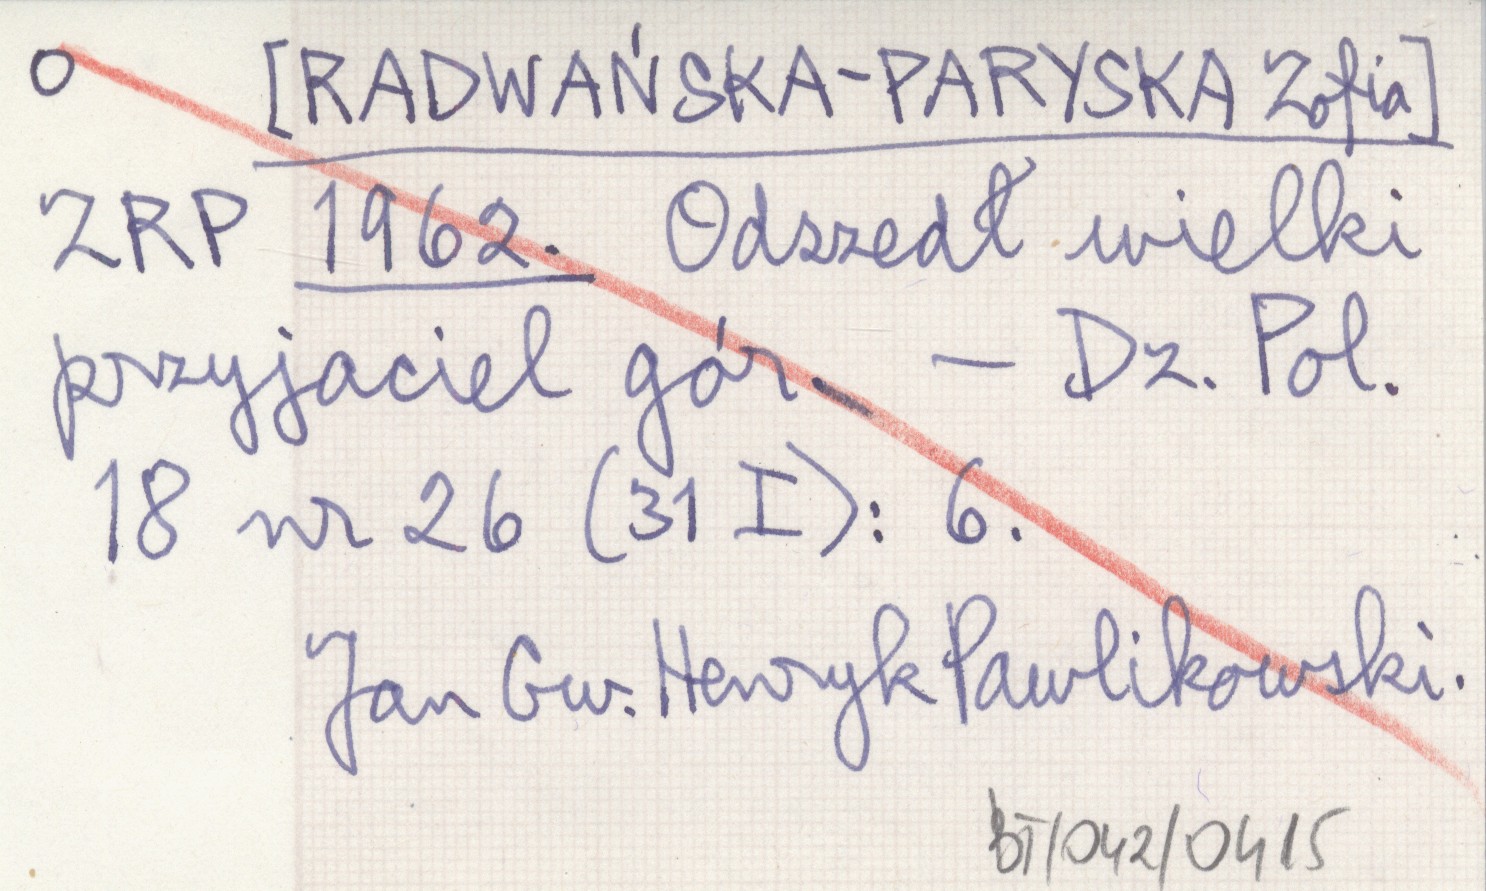 o [RADWAŃSKA-PARYSKA Zofia]
ZRP 1962. Odszedł wielki
przyjaciel gór. — Dz. Pol.
18 nr 26 (31 I): 6.
Jan Gw. Henryk Pawlikowski.
BT/042/0415